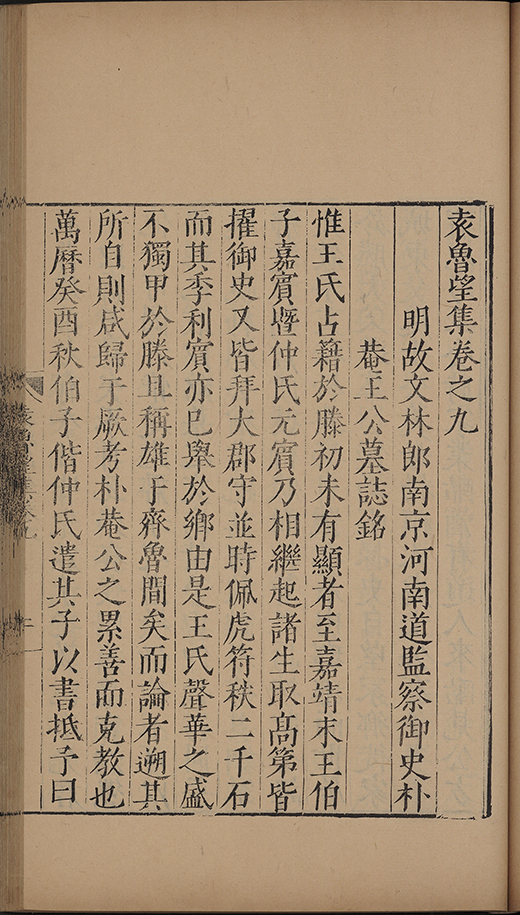 袁魯望集卷之九
明故文林郎南京河南道監察御史朴
菴王公墓誌銘
惟王氏占籍於滕初未有顯者至嘉靖末王伯
子嘉賓暨仲氏元賓乃相繼起諸生取高第皆
擢御史又皆拜大郡守並時佩虎符秩二千石
而其季利賓亦已舉於鄉由是王氏聲華之盛
不獨甲於滕且稱雄于齊魯間矣而論者遡其
所自則咸歸于厥考朴菴公之累善而克教也
萬曆癸酉秋伯子偕仲氏遣其子以書抵予曰